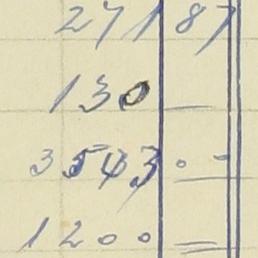 271 87
130 —
3543 . -
1200 =